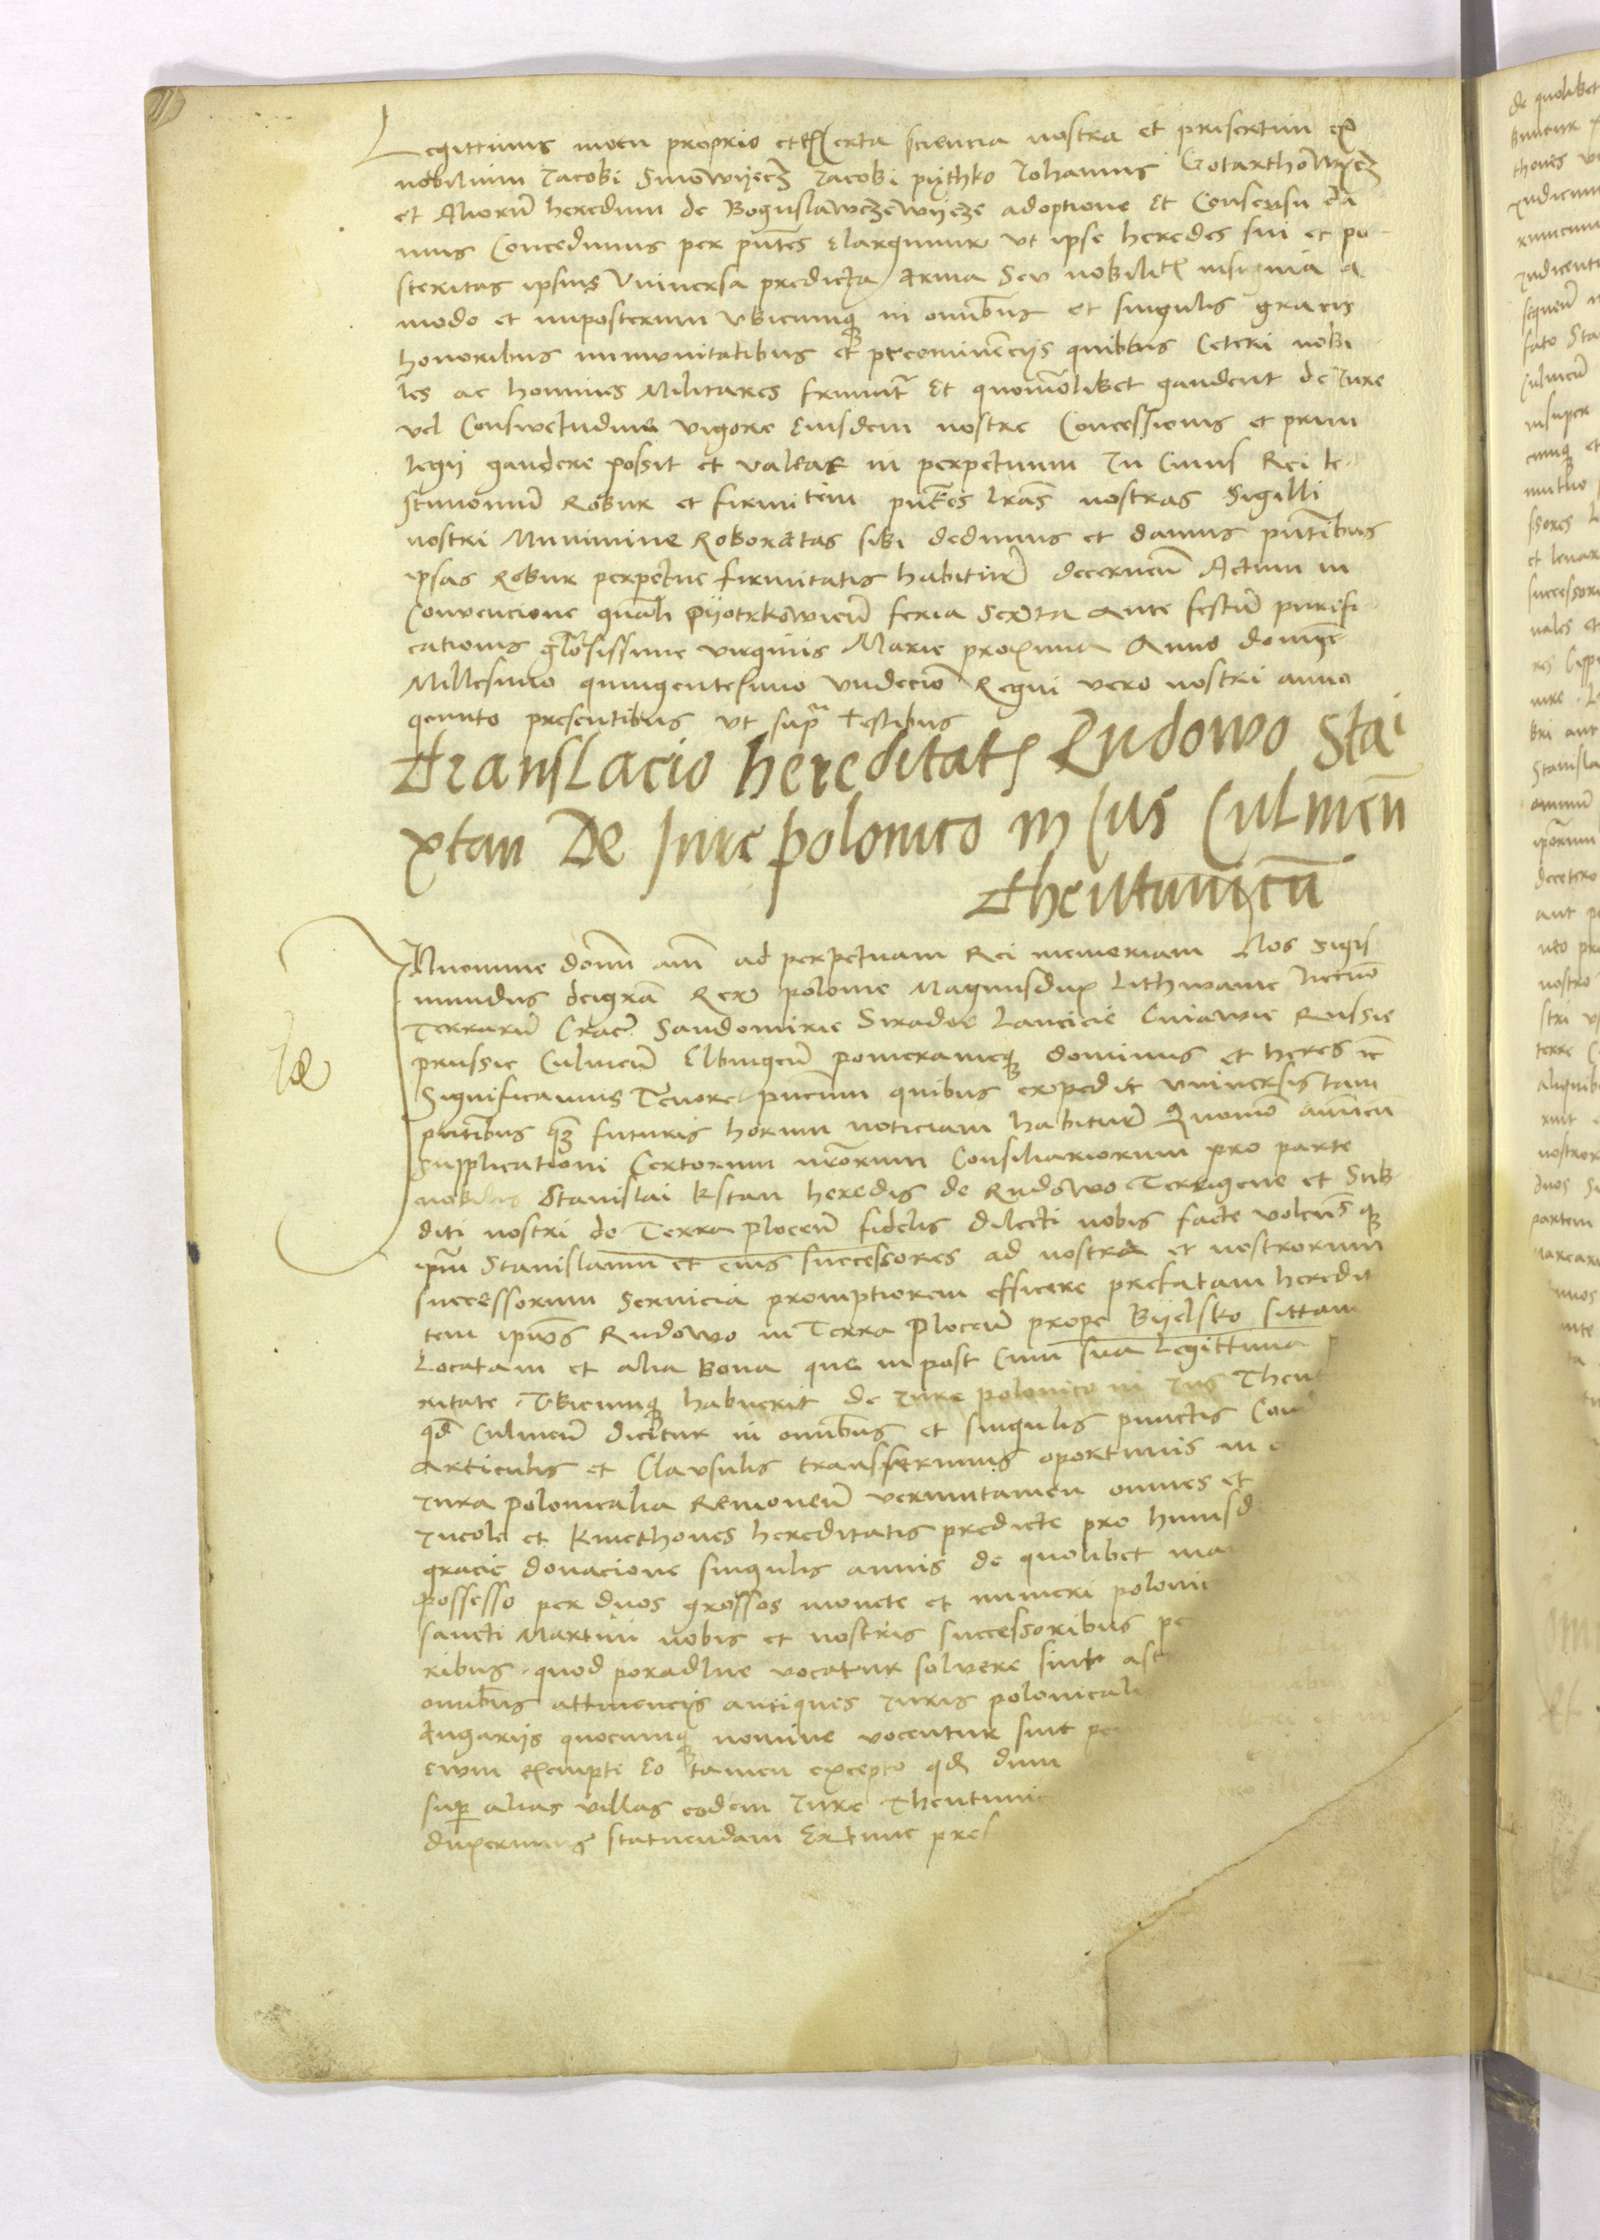 Legittimus motu proprio et ex certa sciencia nostra et prisertim ex
nobilium Jacobi Sinowÿecz Jacobi pÿthko Johannis Gotarthowÿcz
et Aliorū heredum de Boguslawczewÿcze adoptione Et Consensu da
mus Concedimus per pn̄tes Elargimur vt ipse heredes sui et po
steritas ipsius Vniversa predicta Arma Seu nobilit insignia a
modo et inposterum Vbicumq in omībus et singulis gracijs
honoribus immunitatibus et preeminēcijs quibus Ceteri nobi
les ac homines Militares fruunt Et quomōlibet gaudent de Jure
vel Consuetudine vigore Eiusdem nostre Concessionis et priui
legij gaudere possit et valeat in perpetuum In Cuius Rei te
stimoniū Robur et firmitem pn̄tes lrās nostras Sigilli
nostri Munimine Roboratas sibi dedimus et damus pn̄tibus
ipsas Robur perpetue firmitatis habitur decerneñ Actum in
Convencione gnāli Pÿotrkowieñ feria Sexta Ante festū purifi
cationis glōsissime virginis Marie proxima Anno domīe
Millesimo quingentesimo vndecīo Regni vero nostri anno
quinto presentibus vt supra testibus
Translacio hereditat Rudowo Stai
xtan De Jure polonico in Jus Culmeñ
Theutunicū
In nomine domī amē ad perpetuam Rei memoriam Nos Sigis
mundus deigrā Rex polonie Magnusdux Lithwanie Necnō
Terrarū Crac̄ Sandomirie Siradie Lancicie Cuiawie Russie
prussie Culmeñ Elbingeñ pomeranieq dominus et heres ec̄
Significamus Tenore pn̄cium quibus expedit vniversis tam
pn̄tibus q̄ futuris horum noticiam habitur̄ Quomō
Supplicationi Certorum nr̄orum Consiliariorum pro parte
nobilis Stanislai Kstan heredis de Rudowo Terrigene et Sub
diti nostri de Terra Ploceñ fidelis dilecti nobis facte volens q
ipm̄ Stanislaum et eius successores ad nostra et nostrorum
successorum Servicia promptiorem efficere prefatam heredit
tem ipsiōs Rudowo in Terra Ploceñ prope Bÿelsko sittam
Locatam et alia Bona que in post Cum sua Legittima p
ritate Vbicumq habuerit de Jure polonico in Jus Theut
qd Culmeñ dicitur in omībus et singulis punctis Cond
Articulis et Clausulis transferimus oportunis in
Jura Polonicalia Removeñ verumtamen omnes et
Incole et kmethones hereditatis predicte pro huiusd
gracie donacione singulis annis de quolibet man
possesso per duos grossos monete et numeri polonic
sancti Martini nobis et nostris successoribus pe
ribus quod poradlne vocatur solvere sint ast
omībus attinencijs antiques Juris polonicali
Angarijs quocumq nomine vocentur sint pe
ewm exempti Eo tamen excepto qd dum
sup alias villas eodem Jure Theutunic
duxerimus statuendam Extunc pres